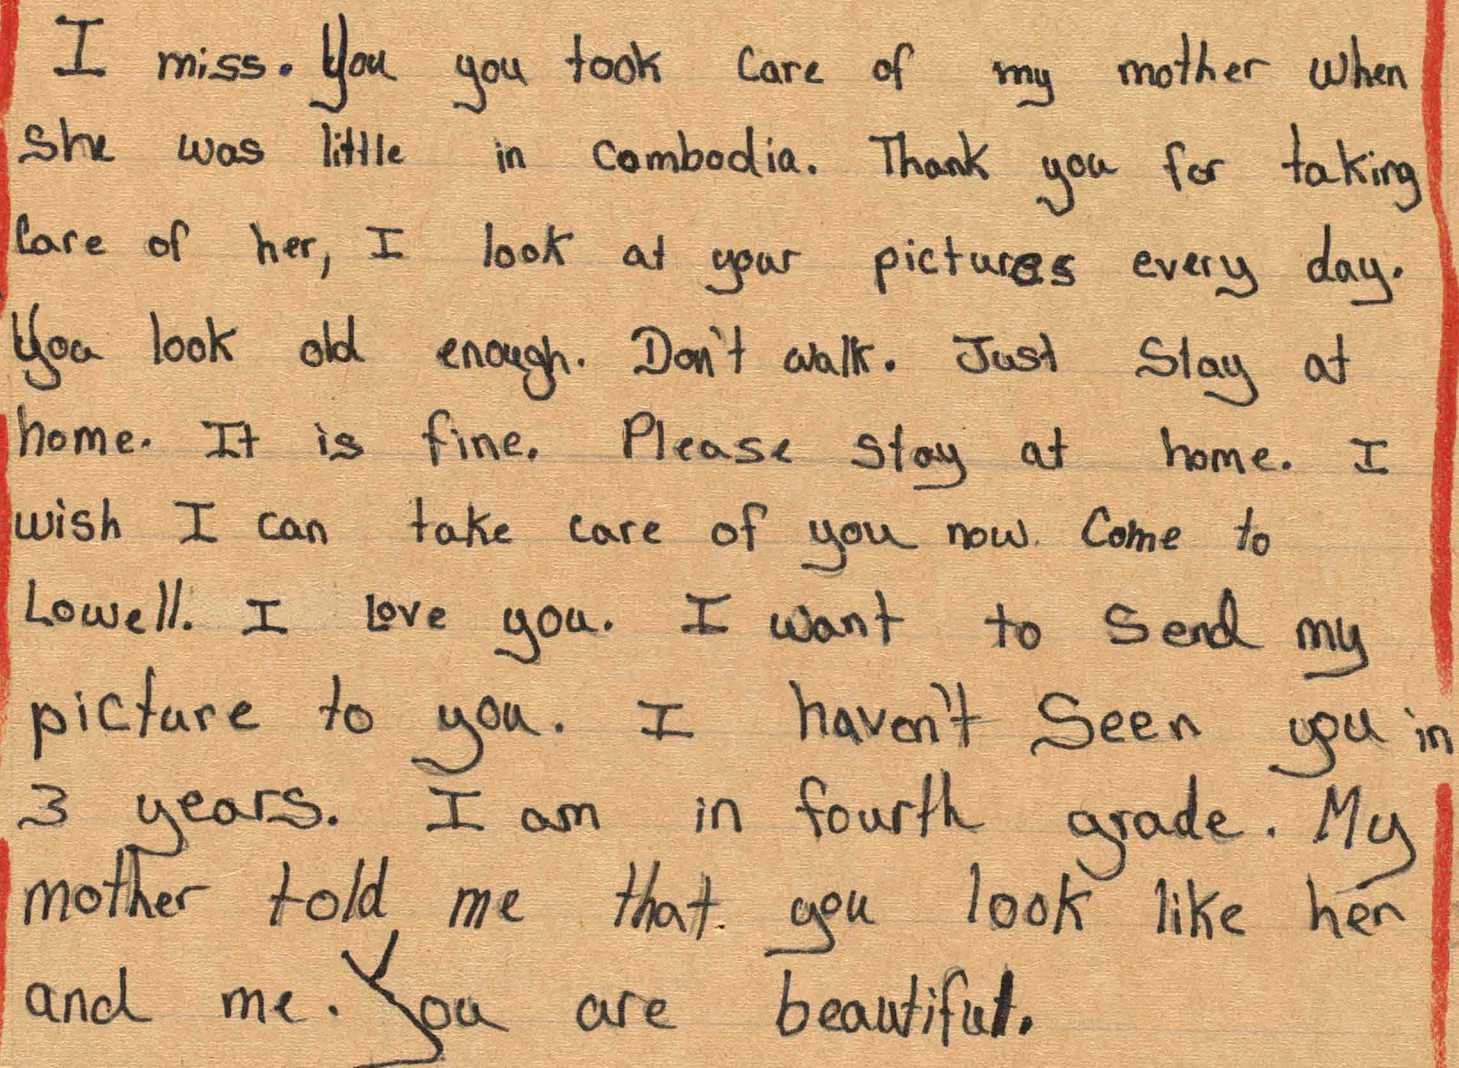 I miss. You you took care of my mother when
She was little in Combodia. Thank you for taking
Care of her, I look at your pictures every day.
You look old enough. Don't walk. Just Stay at
home. It is fine. Please stay at home. I
wish I can take care of you now. Come to
Lowell. I Love you. I want to Send my
picture to you. I haven't Seen you in
3 years. I am in fourth grade. My
mother told me that. you look like her
and me. You are beautiful.